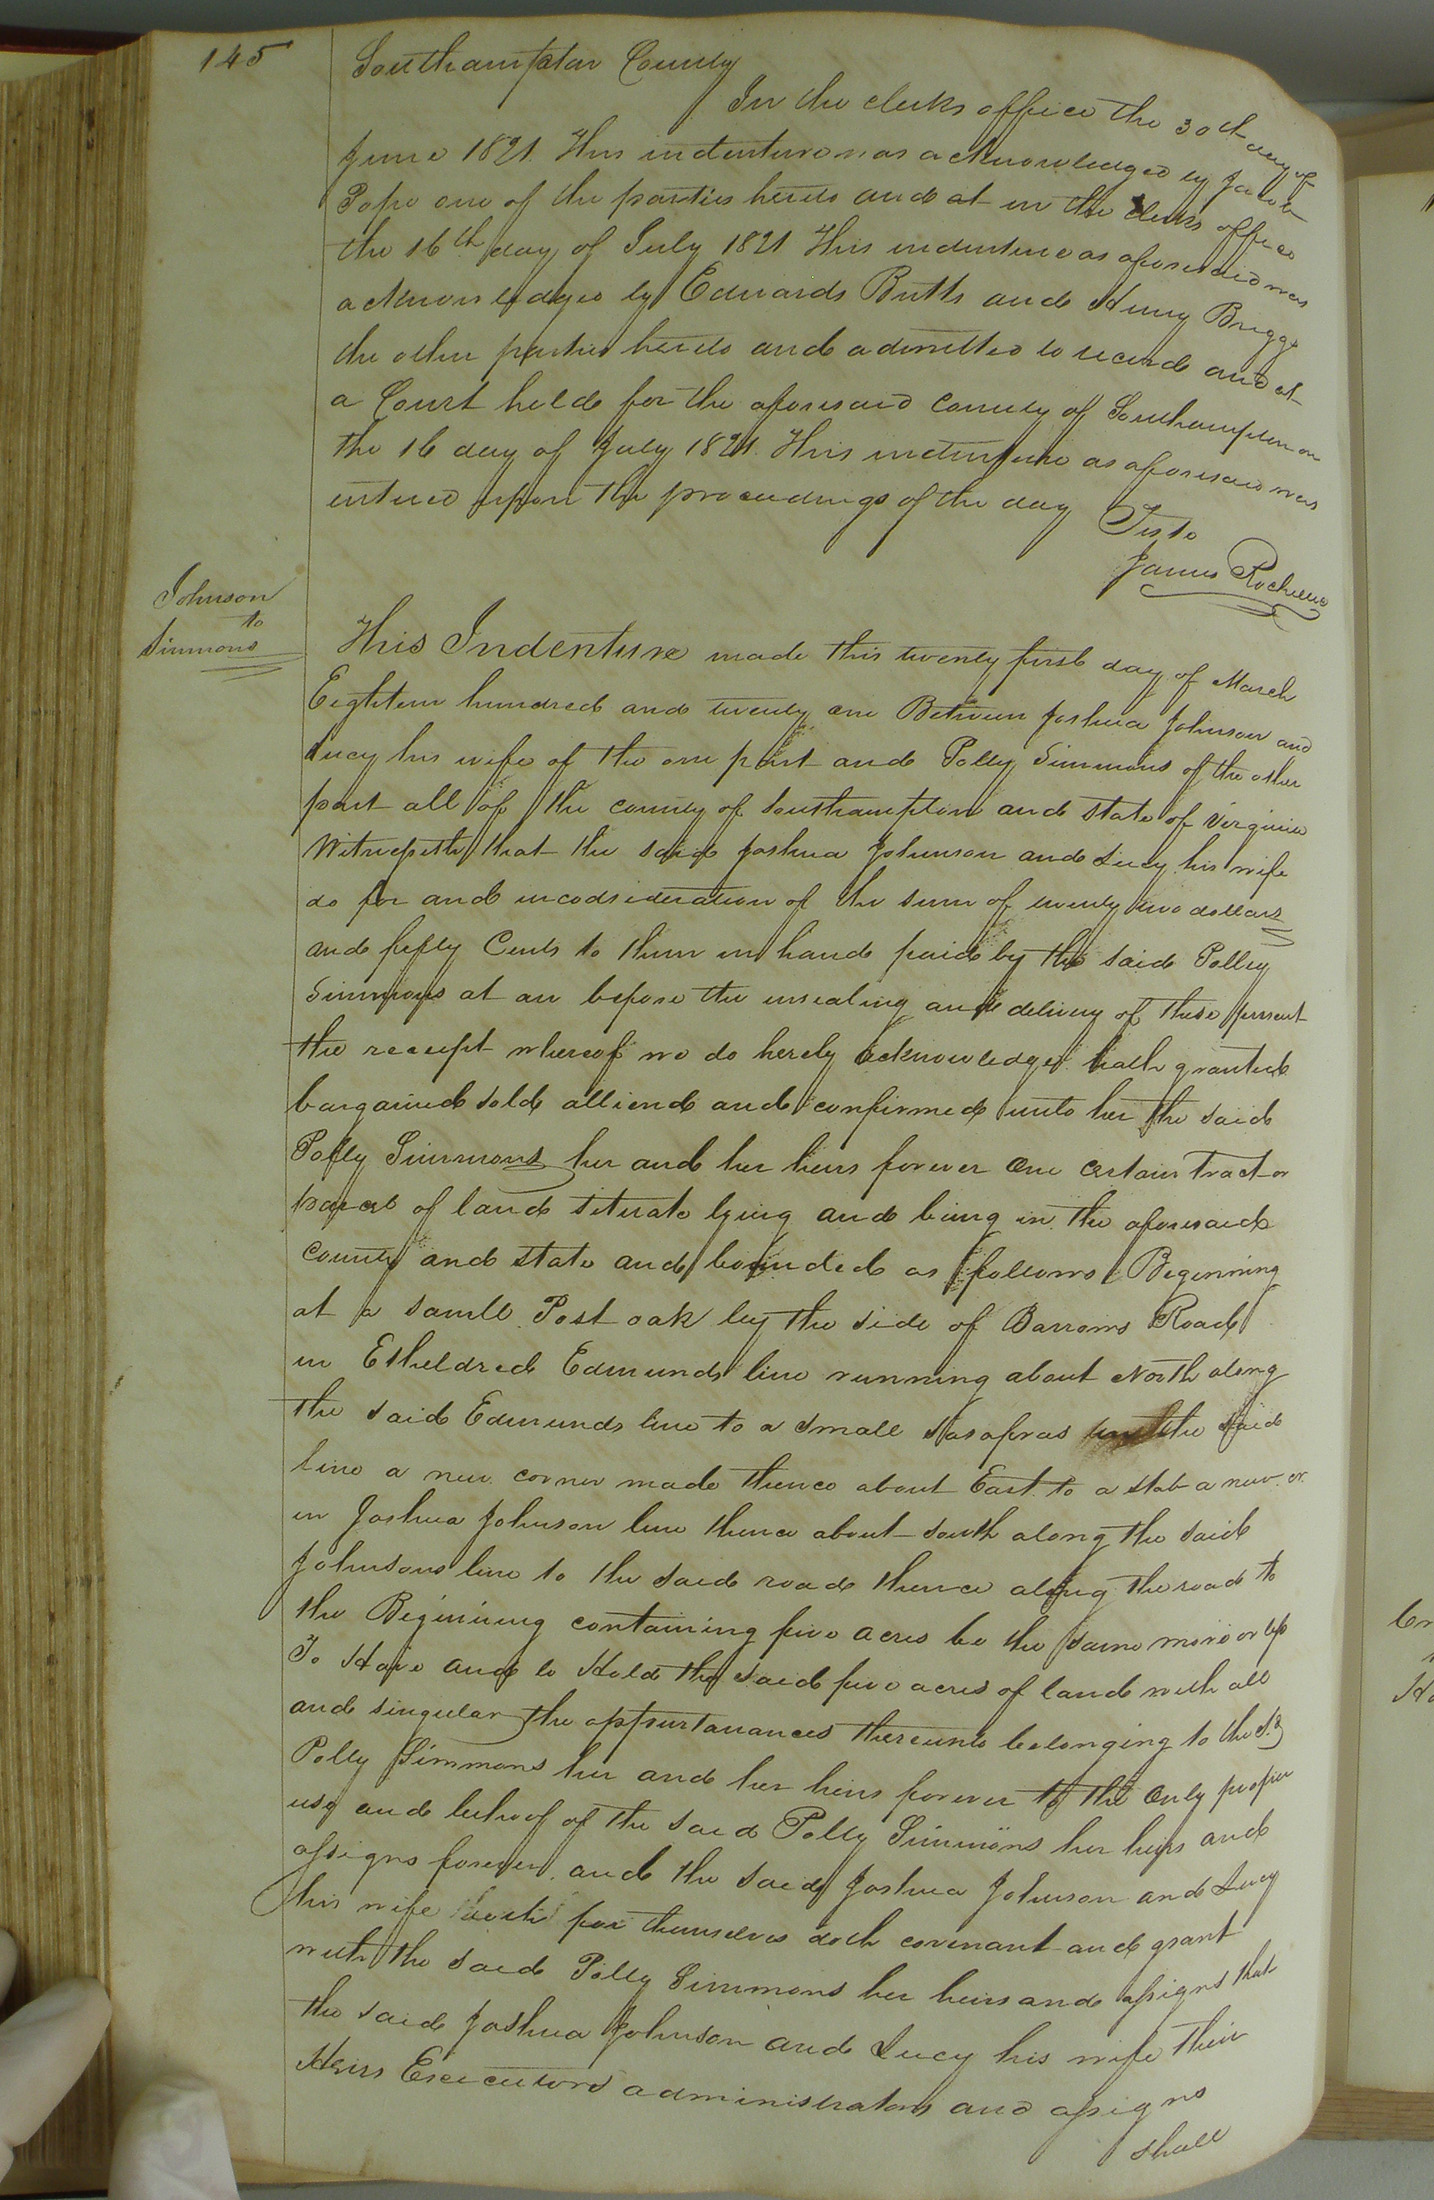 145
Southampton County
In the clerks office the 30th day of
June 1821. This indenture was acknowledged by Jacob
Pope one of the parties hereto and at in the clerks office
the 16th day of July 1821 This indenture as aforesaid was
acknowledged by Edwards Butts and Henry Briggs
the other parties hereto and admitted to record and at
a Court held for the aforesaid county of Southampton on
the 16 day of July 1821. This indenture as aforesaid was
entered upon the proceedings of the day
Teste
James Rochelle
Johnson
to
Simmons
This Indenture made this twenty first day of March
Eighteen hundred and twenty one Between Joshua Johnson and
Lucy his wife of the one part and Polly Simmons of the other
part all of the county of Southampton and state of Virginia
Witnesseth that the said Joshua Johnson and Lucy his wife
do for and incodsideration of the sum of twenty two dollars
and fifty Cents to them in hand paid by the said Polley
Simmons at an before the ensealing and delivery of these present
the receipt whereof we do hereby acknowledge hath granted
bargained sold alliend and confirmed unto her the said
Polly Simmons her and her heirs forever One certain tract or
parcel of land situate lying and being in the aforesaid
County and state and bounded as follows Beginning
at a samll Post oak by the side of Barrows Road
in Etheldred Edmunds line running about North along
the said Edmunds line to a small sasafras the said
line a new corner made thence about East to a stob a new cr.
in Joshua Johnson line thence about south along the said
Johnsons line to the said road thence along the road to
the Beginning containing five acres be the same more or less
To Have and to Hold the said five acres of land with all
and singular the appurtanances thereunto belonging to the sd
Polly Simmons her and her heirs forever to the only proper
use and behoof of the said Polly Simmons her heirs and
assigns forever. and the said Joshua Johnson and Lucy
his wife for themselves doth covenant and grant
with the said Polly Simmons her heirs and assigns that
the said Joshua Johnson and Lucy his wife their
Heirs Executors administrators and assigns
shall